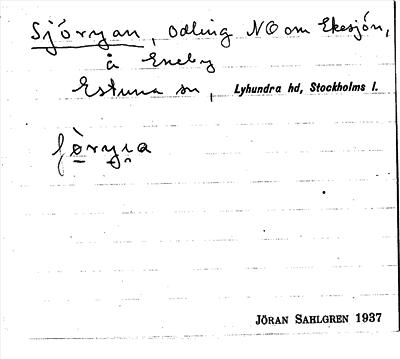 Sjöryan, odling NO om Ekesjön,
å Eneby
Estuna sn, Lyhundra hd, Stockholms l.
JÖRAN SAHLGREN 1937